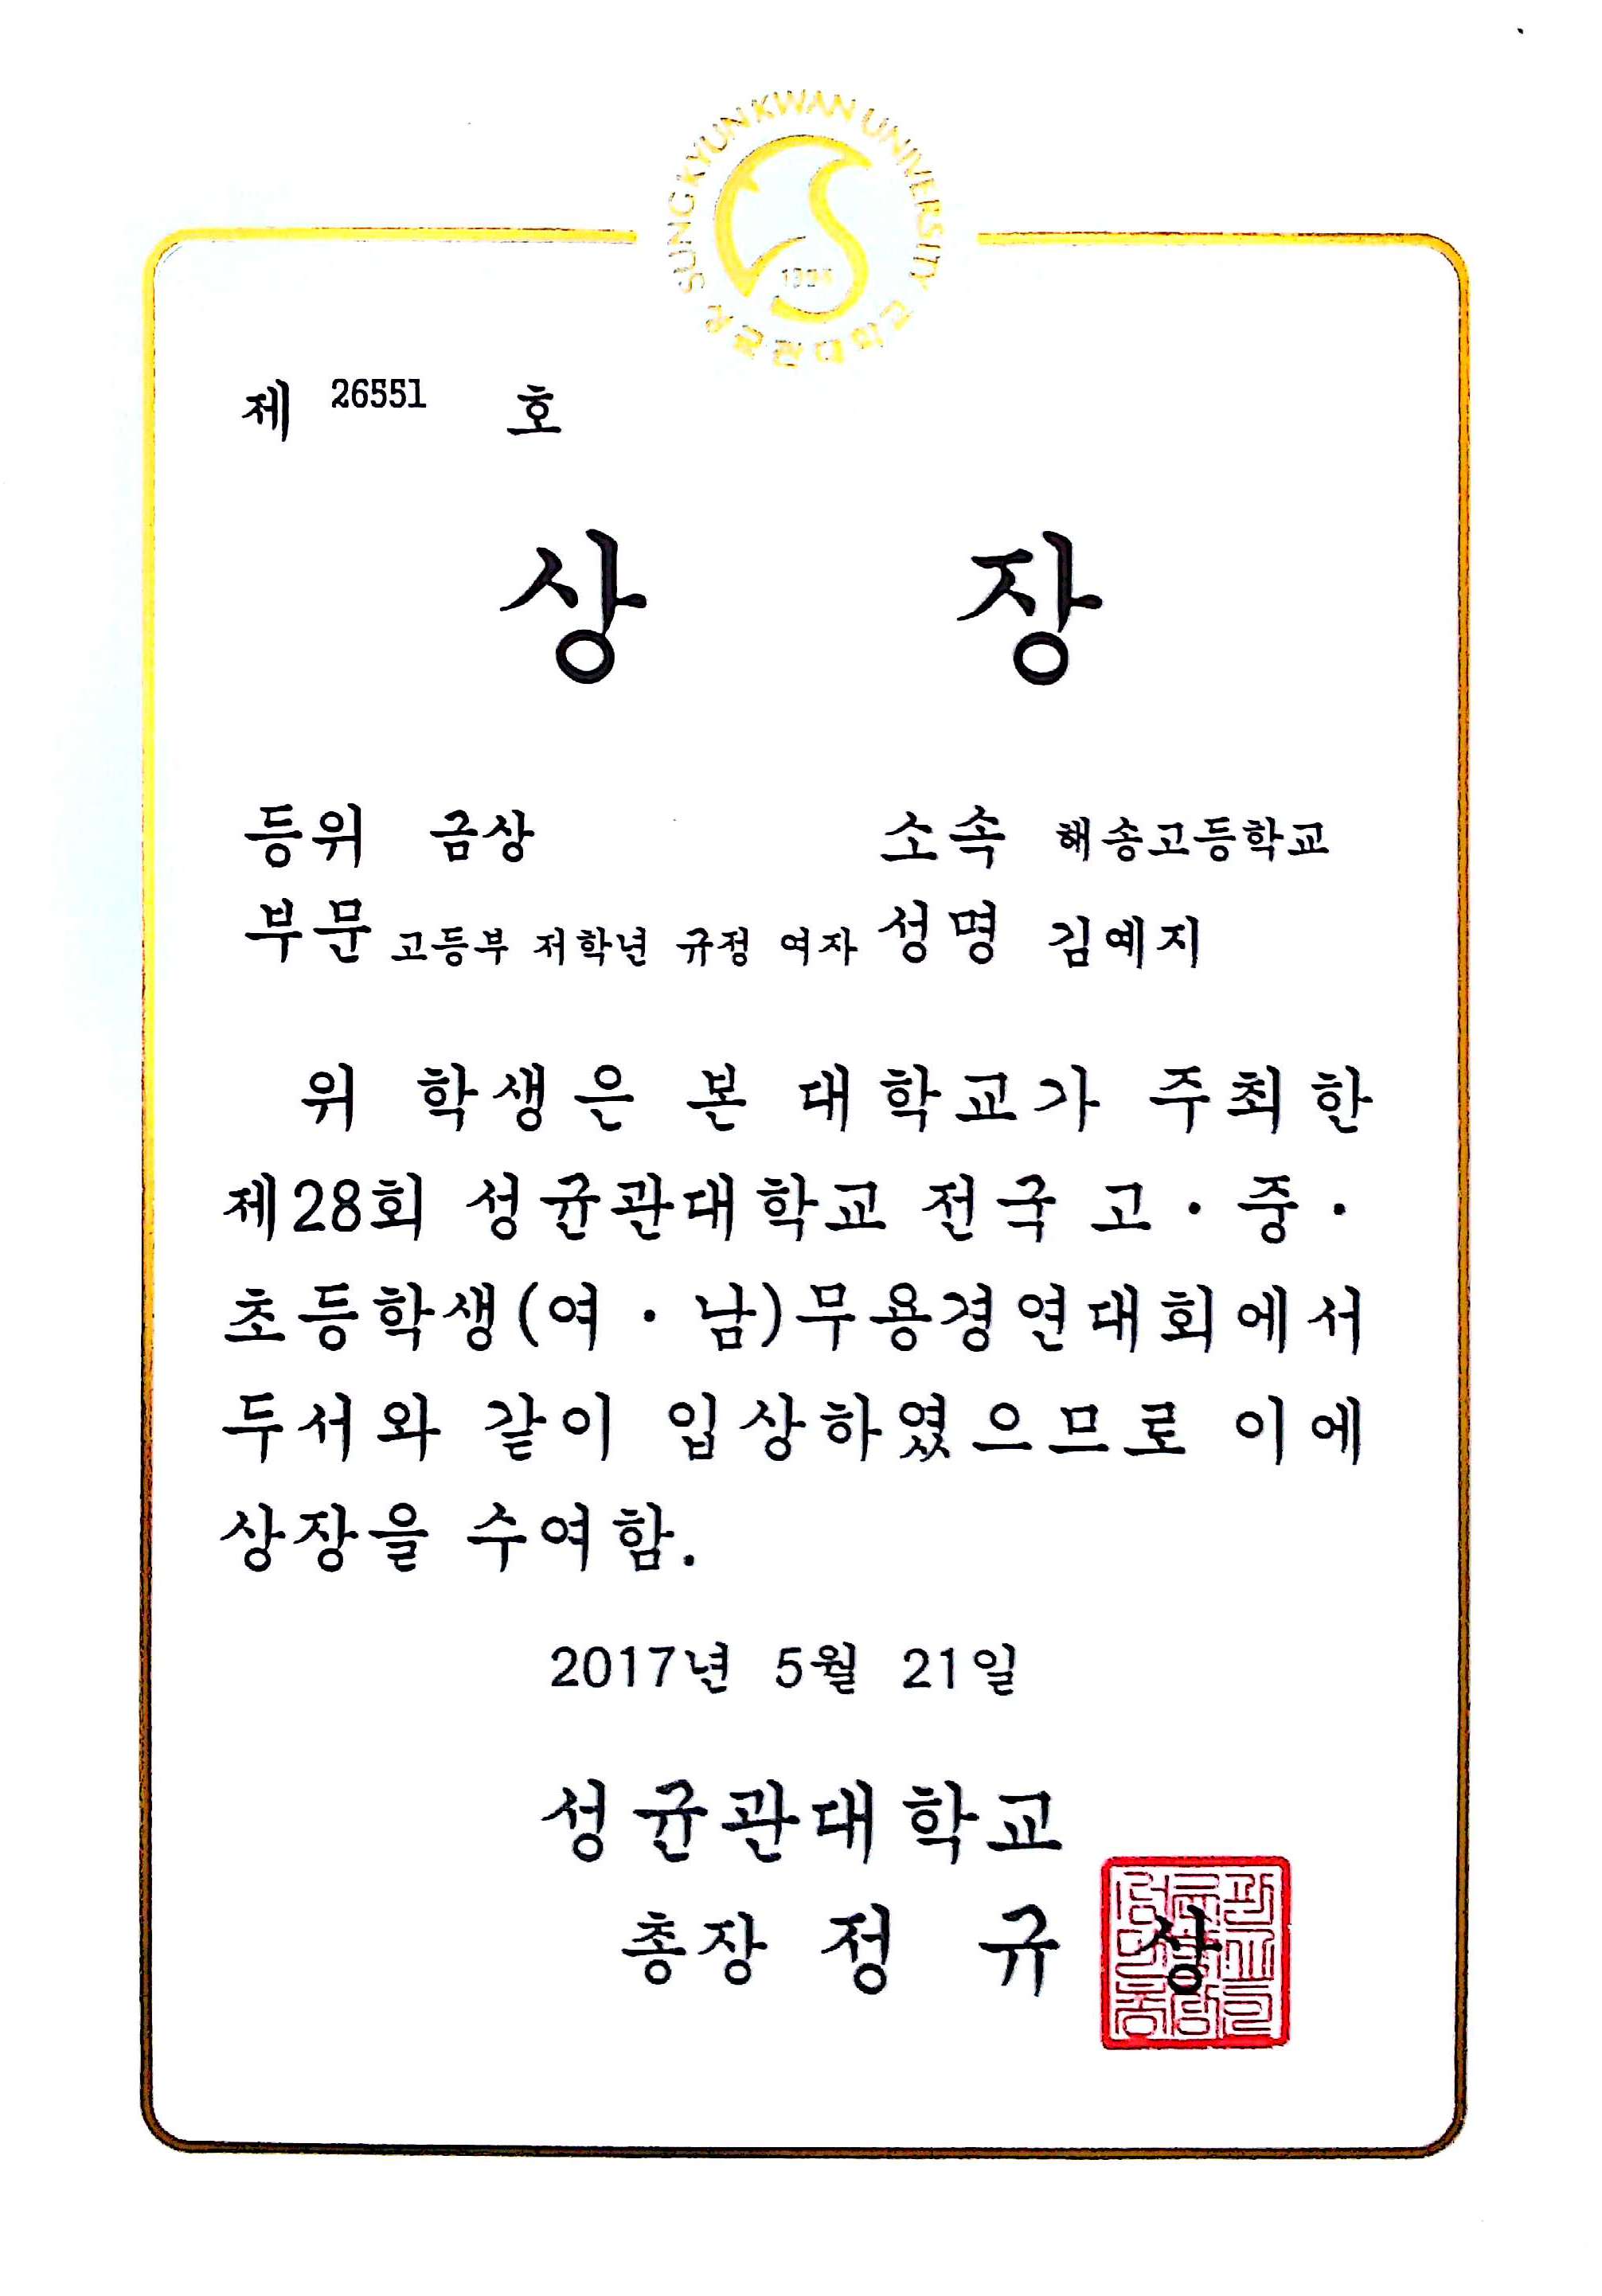 SUNG KYUN KWAN UNIVERSITY 성균관대학교
1398
제 26551 호
상 장
등위 금상 소속 해송고등학교
부문 고등부 저학년 규정 여자 성명 김예지
위 학생은 본 대학교가 주최한
제28회 성균관대학교 전국 고·중·
초등학생(여·남)무용경연대회에서
두서와 같이 입상하였으므로 이에
상장을 수여함.
2017년 5월 21일
성균관대학교
총장 정 규 상